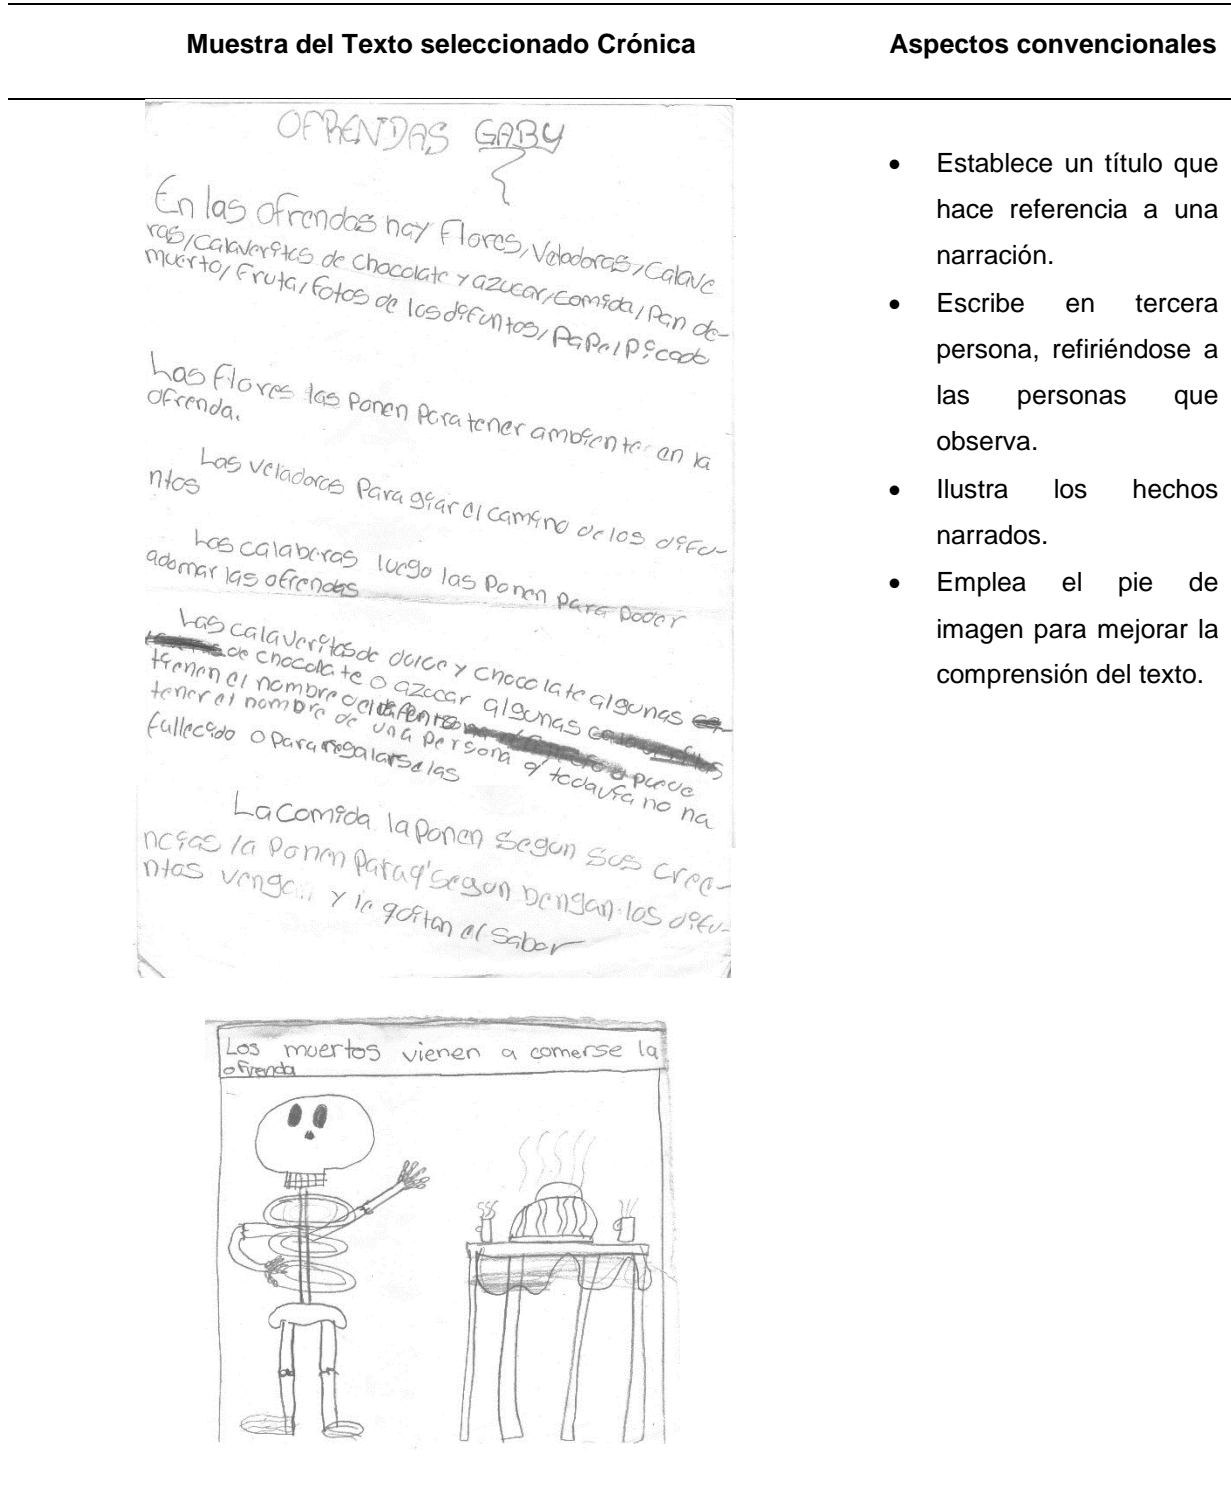 Muestra del Texto seleccionado Crónica
Aspectos convencionales
OFRENDAS GABY
En las ofrendas hay Flores, Veladoras, Calave
ras, Calaveritas de chocolate y azucar, comida, Pan de-
muerto, Fruta, fotos de los difuntos, PaPel Picado
Las flores las Ponen Para tener ambiente en la
ofrenda.
Las veladoras Para giar el camino de los difu-
ntos
Las calaberas luego las Ponen para poder
adornar las ofrendas
Las calaveritas de dulce y chocolate algunas
de chocolate o azucar algunas
tienen el nombre del puede
tener el nombre de una persona q' todavía no ha
fullecido o para regalarselas
La comida la ponen segun sus cree-
ncias la Ponen Para q' segun bengan los difu-
ntos vengan y le qitan el sabor
Los muertos vienen a comerse la
ofrenda
• Establece un título que
hace referencia a una
narración.
• Escribe en tercera
persona, refiriéndose a
las personas que
observa.
• Ilustra los hechos
narrados.
• Emplea el pie de
imagen para mejorar la
comprensión del texto.